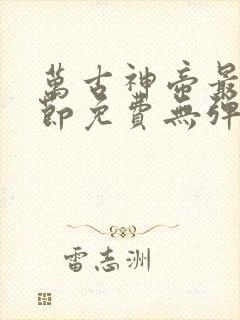 萬古神帝最
節免費無彈
雷志洲